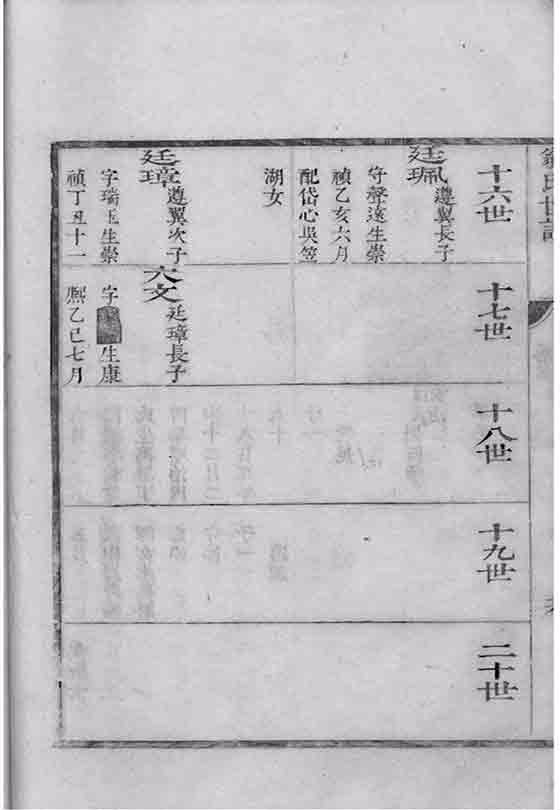 氏世譜
十六世
廷珮
遵翼長子
字聲遠生崇
禎乙亥六月
配岱心吳笠
湖女
廷璋
遵翼次子
字瑞玉生崇
禎丁丑十一
十七世
六文
廷璋長子
字
生康
熙乙巳七月
十八世
十九世
二十世